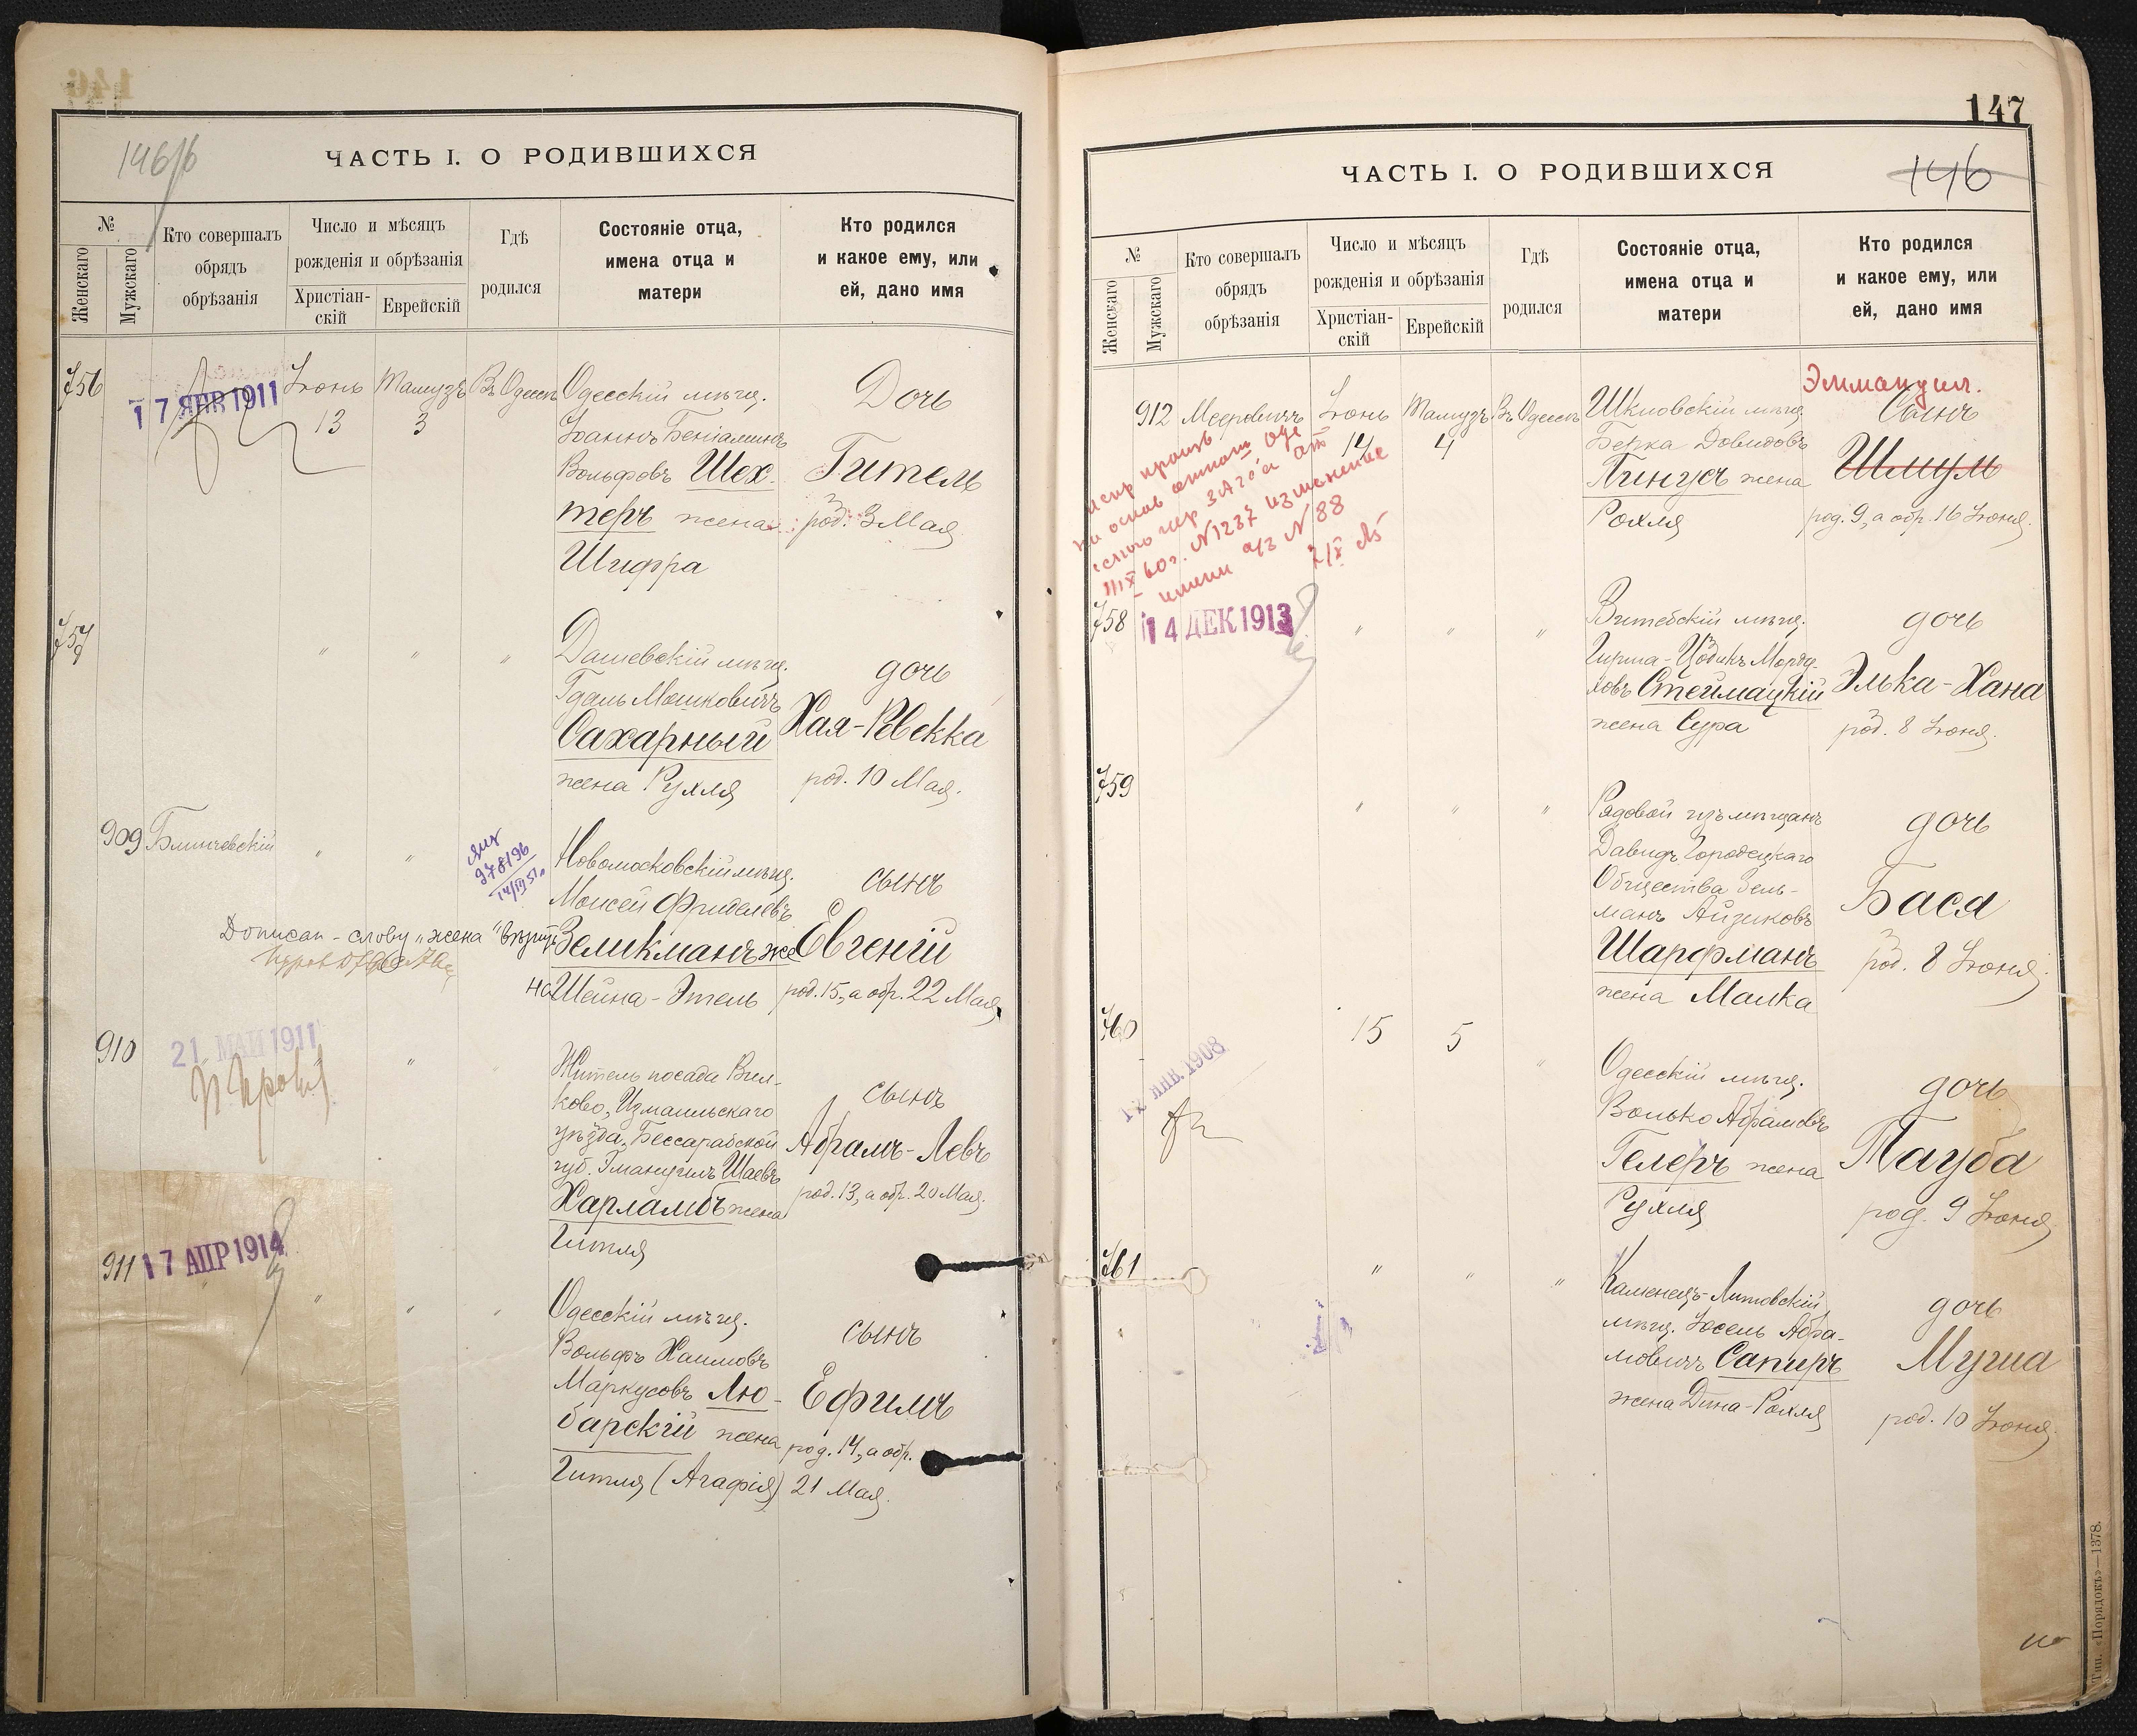 146
ЧАСТЬ I. О РОДИВШИХСЯ
№
Женскаго
Мужскаго
Кто совершалъ
обрядъ
обрѣзанія
Число и мѣсяцъ
рожденія и обрѣзанія
Христіан-
скій
Еврейскій
Гдѣ
родился
Состояніе отца,
имена отца и
матери
Кто родился
и какое ему, или
ей, дано имя
756
17 ЯНВ 1911
Іюнь
13
Тамузъ
3
Въ Одессѣ
Одесскій мѣщ.
Іоаннъ Беніаминъ
Вольфовъ Шех-
теръ жена
Шифра
Дочь
Гитель
род. 3 Мая
757
" " "
Дашевскій мѣщ.
Гдаль Мошковичъ
Сахарный
жена Рухля
дочь
Хая-Ревекка
род. 10 Мая.
909
" "
978196
14/IV 51.
Новомосковскій мѣщ.
Моисей Фриделевъ
Зеликманъ же
на Шейна-Этель
сынъ
Евгеній
род. 15, а обр. 22 Мая
Дописан-слову „жена“ вѣрить
910
21 МАЙ 1911
"
Житель посада Вил-
ково, Измаильскаго
уѣзда, Бессарабской
губ. Эмануилъ Шаевъ
Харламбъ жена
Гитля
сынъ
Абрамъ-Левъ
род. 13, а обр. 20 Мая.
911
17 АПР 1914
" " " "
Одесскій мѣщ.
Вольфъ Хаимовъ
Маркусовъ Лю-
барскій жена
Гитля (Агафія)
сынъ
Ефимъ
род. 14, а обр.
21 Мая.
147
146
ЧАСТЬ I. О РОДИВШИХСЯ
№
Женскаго
Мужскаго
Кто совершалъ
обрядъ
обрѣзанія
Число и мѣсяцъ
рожденія и обрѣзанія
Христіан-
скій
Еврейскій
Гдѣ
родился
Состояніе отца,
имена отца и
матери
Кто родился
и какое ему, или
ей, дано имя
912
Мееровичъ
Іюнь
14
Тамузъ
4
Въ Одессѣ
Шкловскій мѣщ.
Берка Довидовъ
Пинусъ жена
Рохля
Эммануил.
Сынъ
Шмуль
род. 9, а обр. 16 Іюня.
N 1237 изменение
имени а/з N 88
758
14 ДЕК 1913
" " "
Витебскій мѣщ.
Гирша-Цодикъ Морду-
ховъ Стеймацкій
жена Сура
дочь
Элька-Хана
род. 8 Іюня.
759
" " "
Рядовой изъ мѣщанъ
Давидъ Городецкаго
Общества Зель-
манъ Айзиковъ
Шарфманъ
жена Малка
дочь
Бася
род. 8 Іюня.
760
12 ЯНВ. 1908
15
5
"
Одесскій мѣщ.
Волько Абрамовъ
Гелеръ жена
Рухля
дочь
Тауба
род. 9 Іюня
761
" " "
Каменецъ-Литовскій
мѣщ. Іосель Абра-
мовичъ Сапиръ
жена Дина-Рохля
дочь
Муриа
род. 10 Іюня.
Тип. «Порядокъ»—1378.